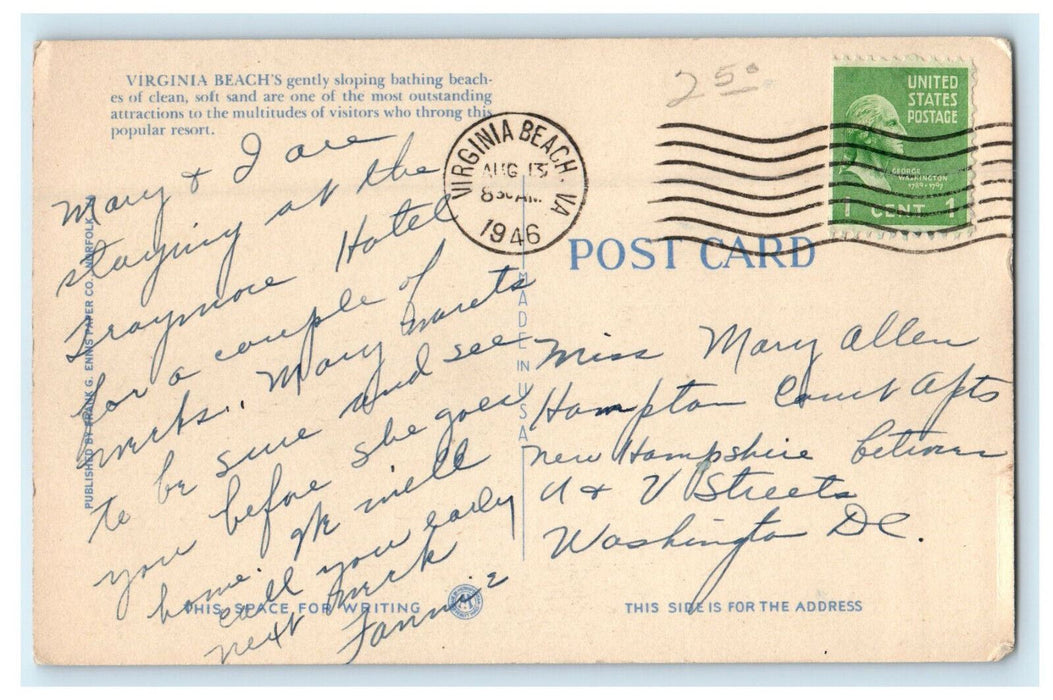 VIRGINIA BEACH'S gently sloping bathing beach-
es of clean, soft sand are one of the most outstanding
attractions to the multitudes of visitors who throng this
popular resort.
Mary & I are
staying at the
Traymore Hotel
for a couple of
weeks. Mary wants
to be sure and see
you before she goes
home. We will
call you early
next week
Fannie
PUBLISHED BY FRANK G. ENNIS PAPER CO. NORFOLK
THIS SPACE FOR WRITING
VIRGINIA BEACH. VA
AUG 13
8 30 AM
1946
MADE IN USA
25⁰
UNITED
STATES
POSTAGE
GEORGE
WASHINGTON
1789-1797
1 CENT 1
POST CARD
Miss Mary Allen
Hampton Court Apts
New Hampshire between
U & V Streets
Washington DC.
THIS SIDE IS FOR THE ADDRESS